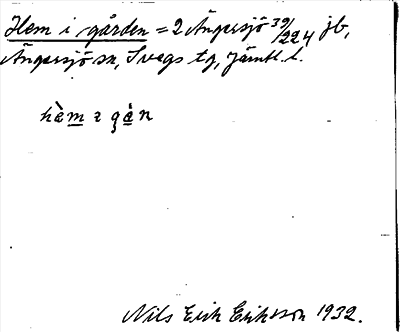 Hem i gården = 2 Ängersjö 39/224 jb,
Ängersjö sn, Svegs tg, Jämtl. l.
hὲm ɪ gån
Nils Erik Eriksson 1932.